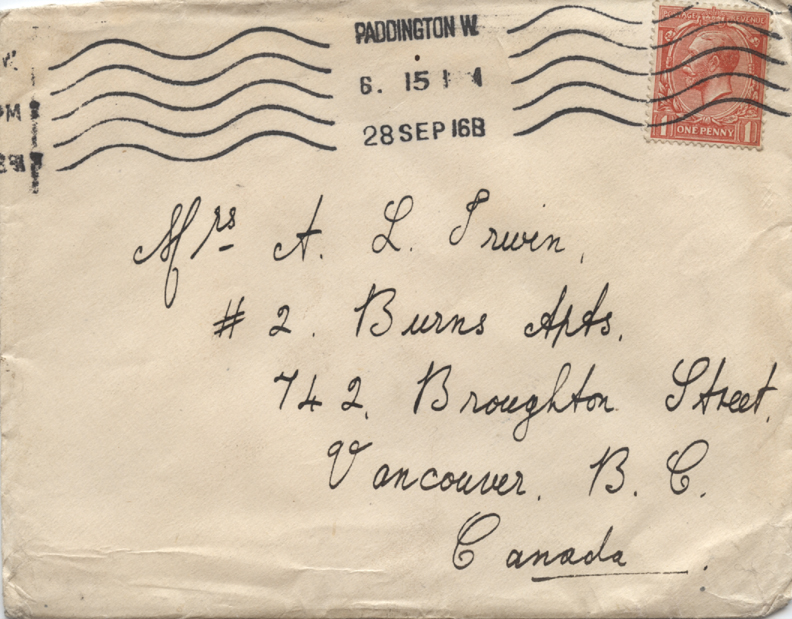 PADDINGTON W.
6. 15
28 SEP 16B
POSTAGE REVENUE
1 ONE PENNY 1
Mrs A. L. Irwin,
# 2. Burns Apts.
742, Broughton Street,
Vancouver. B. C.
Canada.